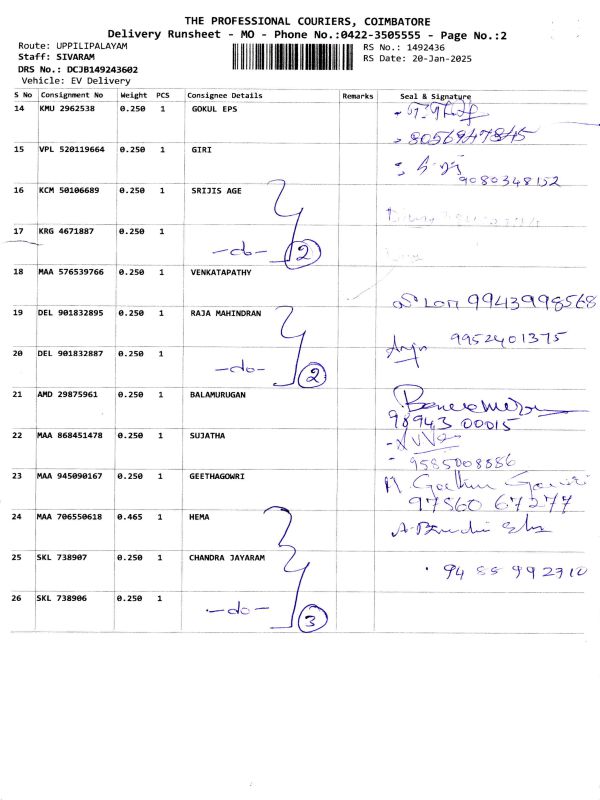 THE PROFESSIONAL COURIERS, COIMBATORE
Delivery Runsheet - MO - Phone No.:0422-3505555 - Page No.:2
Route: UPPILIPALAYAM
RS No.: 1492436
Staff: SIVARAM
RS Date: 20-Jan-2025
DRS No.: DCJB149243602
Vehicle: EV Delivery
S No Consignment No Weight PCS Consignee Details Remarks Seal & Signature
14 KMU 2962538 0.250 1 GOKUL EPS
8056947845
15 VPL 520119664 0.250 1 GIRI
9080348152
16 KCM 50106689 0.250 1 SRIJIS AGE
17 KRG 4671887 0.250 1
-do- 2
18 MAA 576539766 0.250 1 VENKATAPATHY
9943998568
19 DEL 901832895 0.250 1 RAJA MAHINDRAN
9952401375
20 DEL 901832887 0.250 1
-do- 2
21 AMD 29875961 0.250 1 BALAMURUGAN
98943 00015
22 MAA 868451478 0.250 1 SUJATHA
9585008886
23 MAA 945090167 0.250 1 GEETHAGOWRI
97860 67277
24 MAA 706550618 0.465 1 HEMA
25 SKL 738907 0.250 1 CHANDRA JAYARAM
94 88 992710
26 SKL 738906 0.250 1 -do- 3